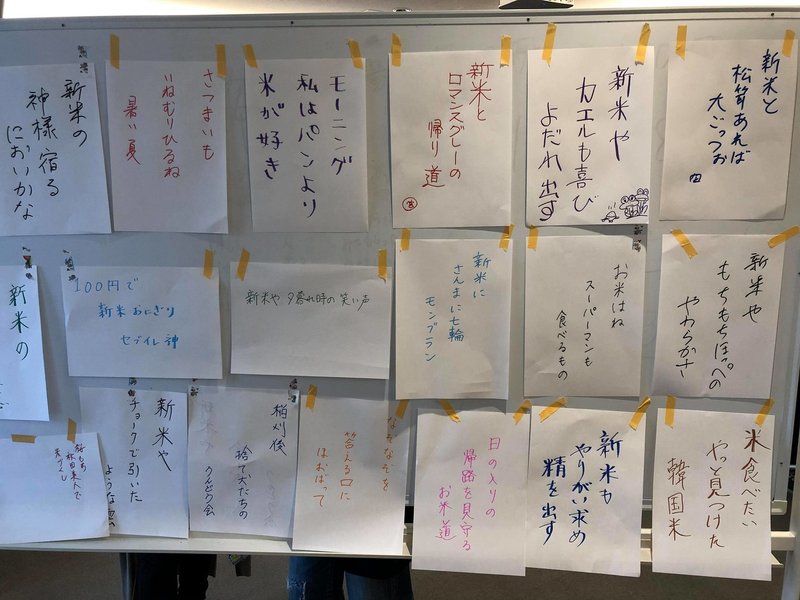 新米と
松茸あれば
大ごっつお
新米や
カエルも喜び
よだれ出す
新米と
ロマンスグレーの
帰り道
モーニング
私はパンより
米が好き
さつまいも
いねむりひるね
暑い夏
新米の
神様宿る
においかな
新米や
もちもちほっぺの
やわらかさ
お米はね
スーパーマンも
食べるもの
新米に
さんまに七輪
モンブラン
新米や夕暮れ時の笑い声
100円で
新米おにぎり
セブイレ神
新米の
米食べたい
やっと見つけた
韓国米
新米も
やりがい求め
精を出す
日の入りの
帰路を見守る
お米道
なぞなぞを
答える口に
ほおばって
稲刈後
捨て犬たちの
うんどう会
新米や
チョークで引いた
ような雲